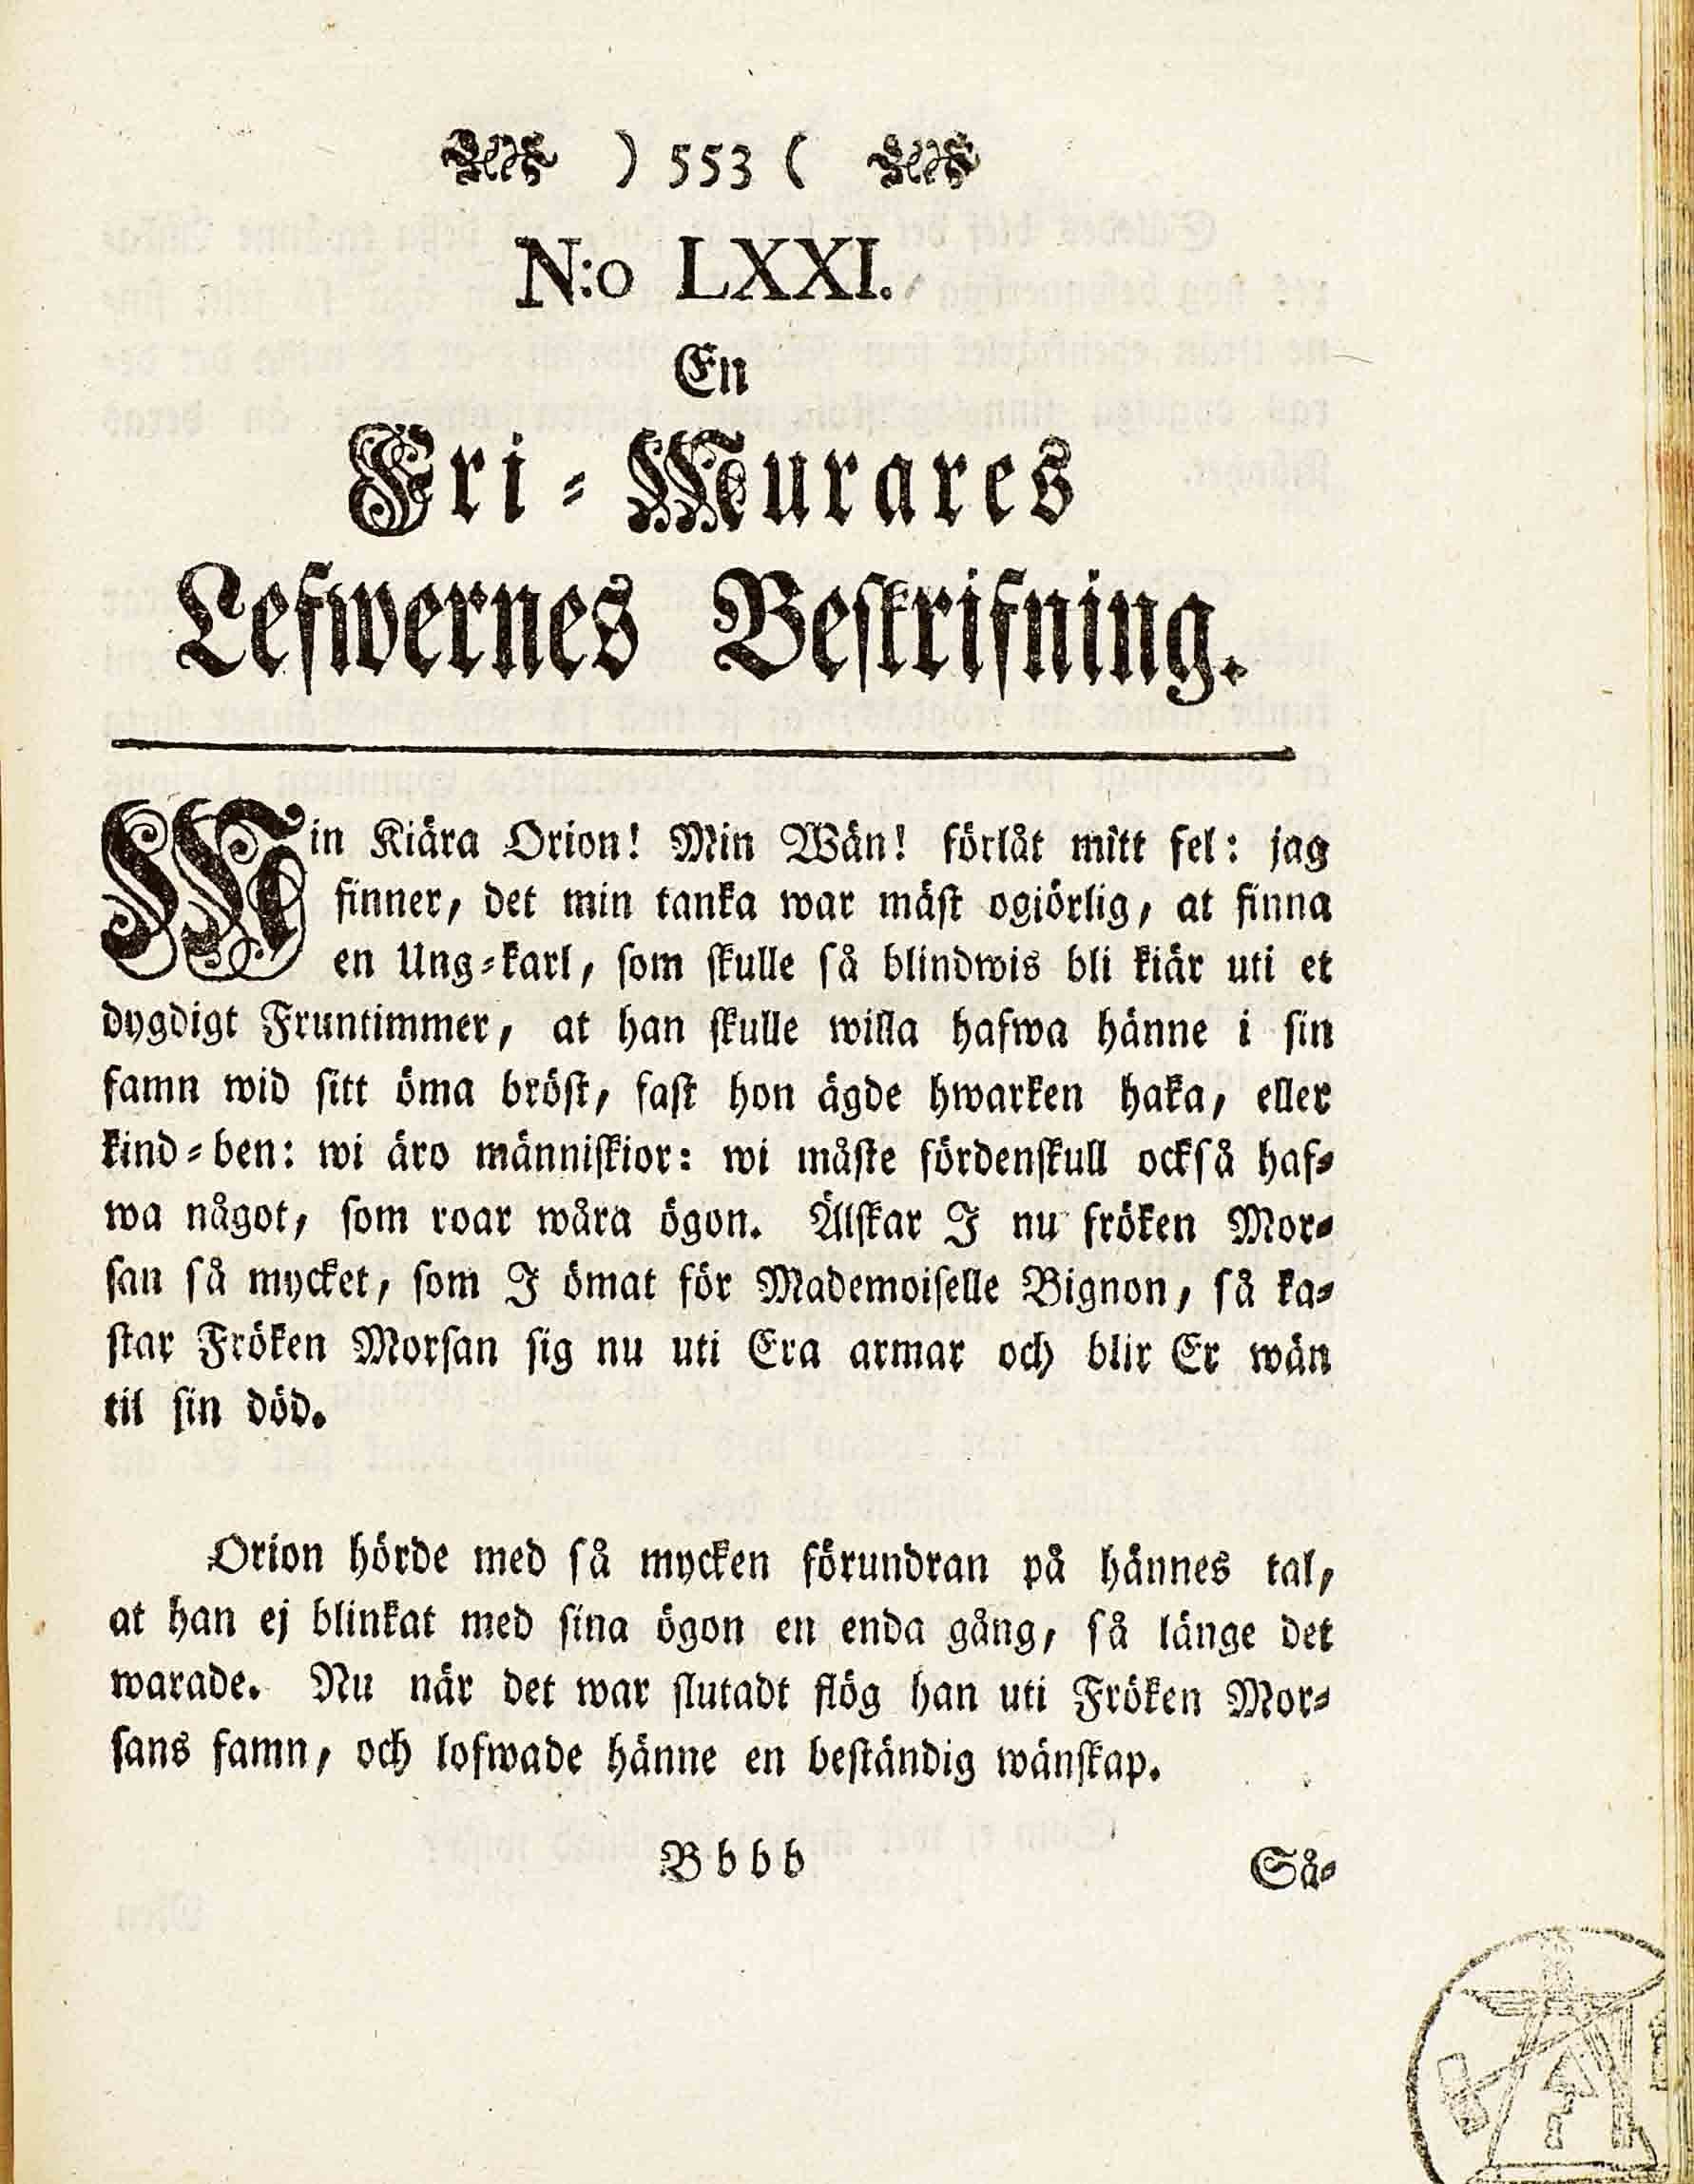 ) 553 (
N:o LXXI.
En
Fri-Murares
Lefwernes Beskrifning.
Min Kiära Orion! Min Wän! förlåt mitt fel: jag
finner, det min tanka war mäst ogiörlig, at finna
en Ung-karl, som skulle så blindwis bli kiär uti et
dygdigt Fruntimmer, at han skulle willa hafwa hänne i sin
famn wid sitt öma bröst, fast hon ägde hwarken haka, eller
kind-ben: wi äro människior: wi måste fördenskull också haf-
wa något, som roar wåra ögon. Älskar I nu fröken Mor-
san så mycket, som I ömat för Mademoiselle Bignon, så ka-
star Fröken Morsan sig nu uti Era armar och blir Er wän
til sin död.
Orion hörde med så mycken förundran på hännes tal,
at han ej blinkat med sina ögon en enda gång, så länge det
warade. Nu när det war slutadt flög han uti Fröken Mor-
sans famn, och lofwade hänne en beständig wänskap.
Bbbb Så-